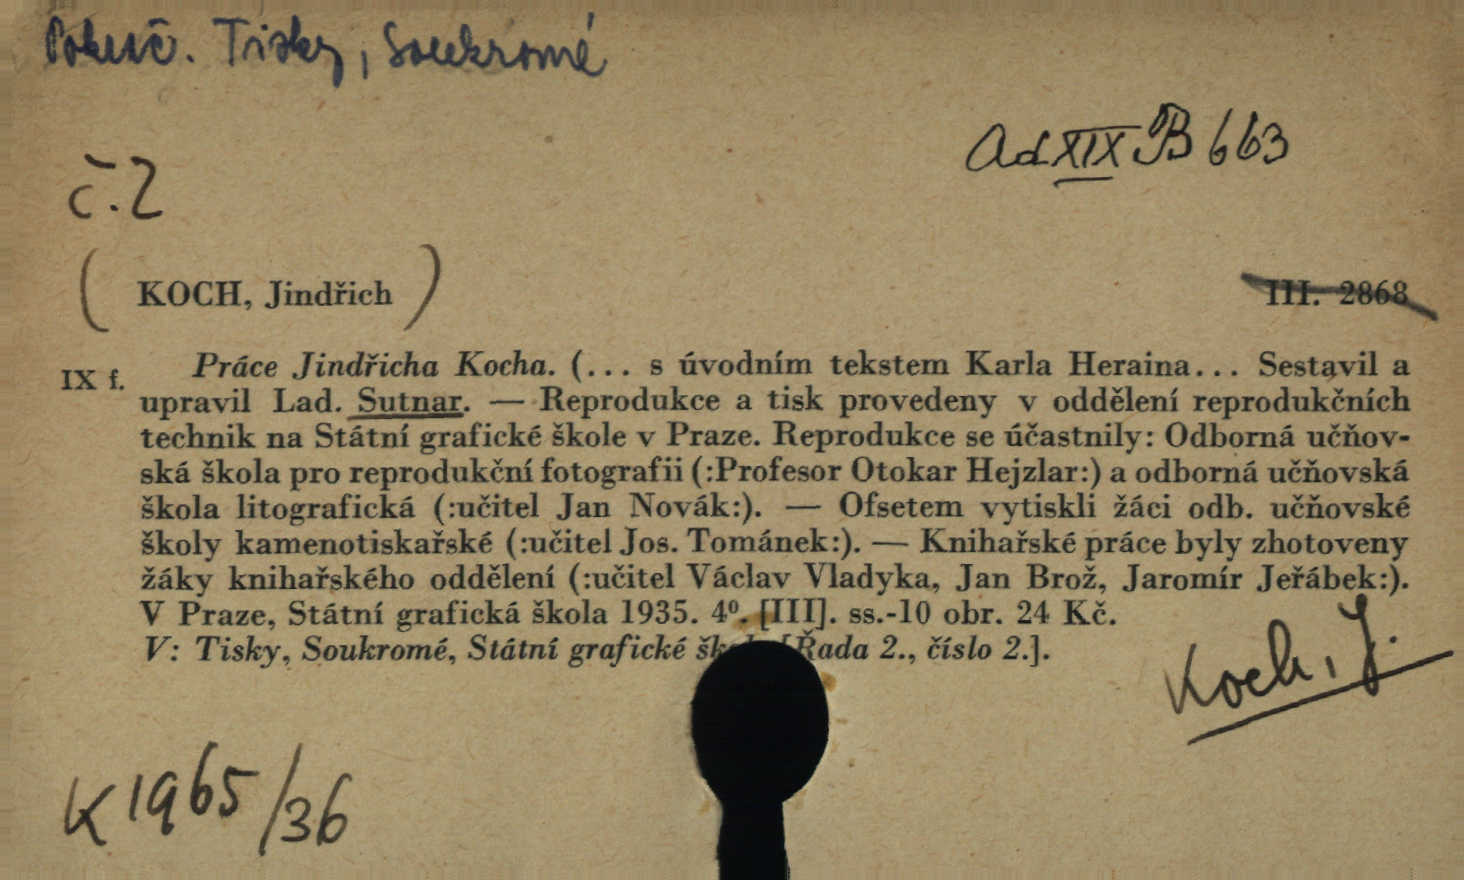 Pokrač. Tisky, Soukromé
Ad XIX B 663
č. 2
( KOCH, Jindřich )
III. 2868
IX f.
Práce Jindřicha Kocha. (... s úvodním tekstem Karla Heraina... Sestavil a
upravil Lad. Sutnar. — Reprodukce a tisk provedeny v oddělení reprodukčních
technik na Státní grafické škole v Praze. Reprodukce se účastnily: Odborná učňov-
ská škola pro reprodukční fotografii (:Profesor Otokar Hejzlar:) a odborná učňovská
škola litografická (:učitel Jan Novák:). — Ofsetem vytiskli žáci odb. učňovské
školy kamenotiskařské (:učitel Jos. Tománek:). — Knihařské práce byly zhotoveny
žáky knihařského oddělení (:učitel Václav Vladyka, Jan Brož, Jaromír Jeřábek:).
V Praze, Státní grafická škola 1935. 4⁰. [III]. ss.-10 obr. 24 Kč.
V: Tisky, Soukromé, Státní grafické [Řada 2., číslo 2.].
Koch, J.
K 1965/36